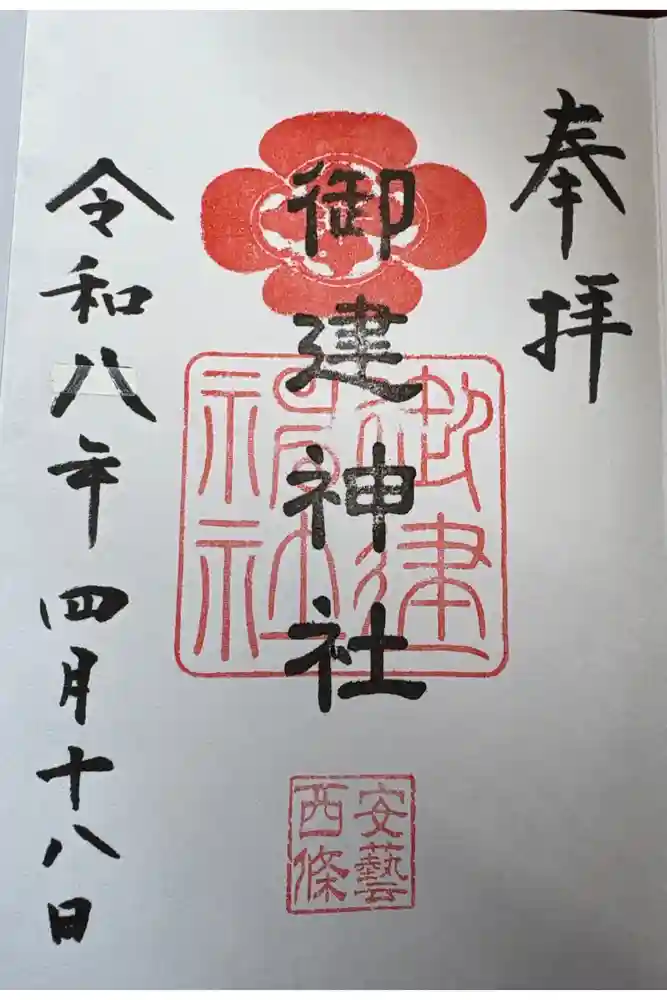 奉拝
御建神社
御建神社
安藝西條
令和八年四月十八日